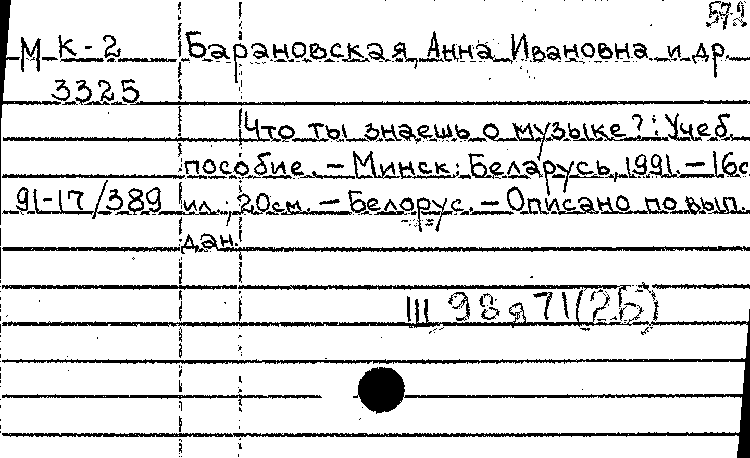 572
М К-2 Барановская, Анна Ивановна и др.
3325
Что ты знаешь о музыке?: Учеб.
пособие. – Минск: Беларусь, 1991. – 16с
91-17/389 ил.; 20см. – Белорус. – Описано по вып.
дан.
III 98я71(2Б)